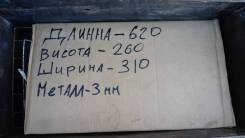 Длинна-620
Высота-260
Ширина-310
Металл-3мм